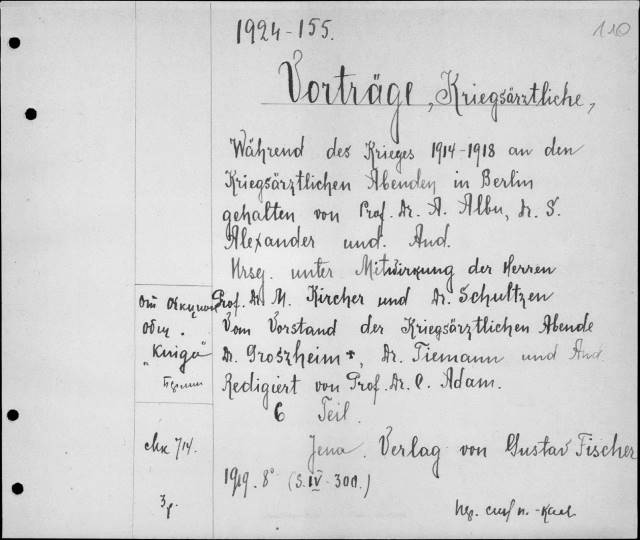 1924-155.
110
Vorträge, Kriegsärztliche,
Während des Krieges 1914-1918 an den
Kriegsärztlichen Abenden in Berlin
gehalten von Prof. Dr. A. Albu, Dr. S.
Alexander und. And.
Hrsg. unter Mitwirkung der Herren
Prof. Dr. M. Kircher und Dr. Schultzen
Vom Vorstand der Kriegsärztlichen Abende
Dr. Groszheim †, Dr. Tiemann und And.
Redigiert von Prof. Dr. C. Adam.
6 Teil.
Jena. Verlag von Gustav Fischer
1919. 8° (S. IV - 300.)
От
Общ.
"Книга"
714.
3р.